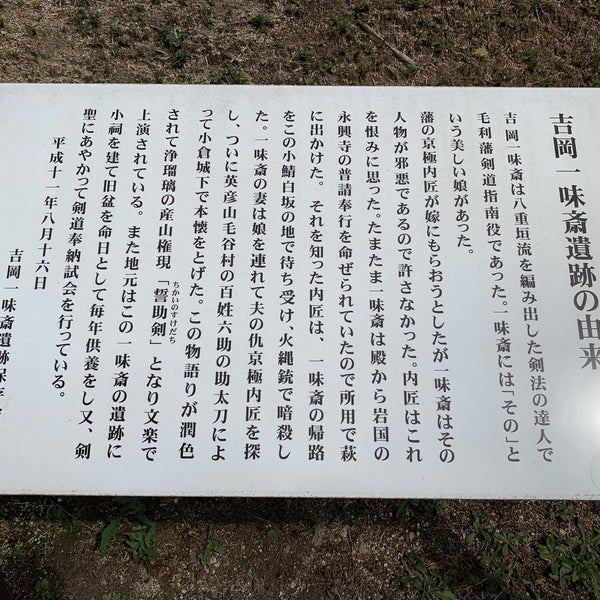 吉岡一味斎遺跡の由来
吉岡一味斎は八重垣流を編み出した剣法の達人で
毛利藩剣道指南役であった。一味斎には「その」と
いう美しい娘があった。
藩の京極内匠が嫁にもらおうとしたが一味斎はその
人物が邪悪であるので許さなかった。内匠はこれ
を恨みに思った。たまたま一味斎は殿から岩国の
永興寺の普請奉行を命ぜられていたので所用で萩
に出かけた。それを知った内匠は、一味斎の帰路
をこの小鯖白坂の地で待ち受け、火縄銃で暗殺し
た。一味斎の妻は娘を連れて夫の仇京極内匠を探
し、ついに英彦山毛谷村の百姓六助の助太刀によ
って小倉城下で本懐をとげた。この物語りが潤色
されて浄瑠璃の産山権現「誓助剣」となり文楽で
ちかいのすけだち
上演されている。また地元はこの一味斎の遺跡に
小祠を建て旧盆を命日として毎年供養をし又、剣
聖にあやかって剣道奉納試合を行っている。
平成十一年八月十六日
吉岡一味斎遺跡保存